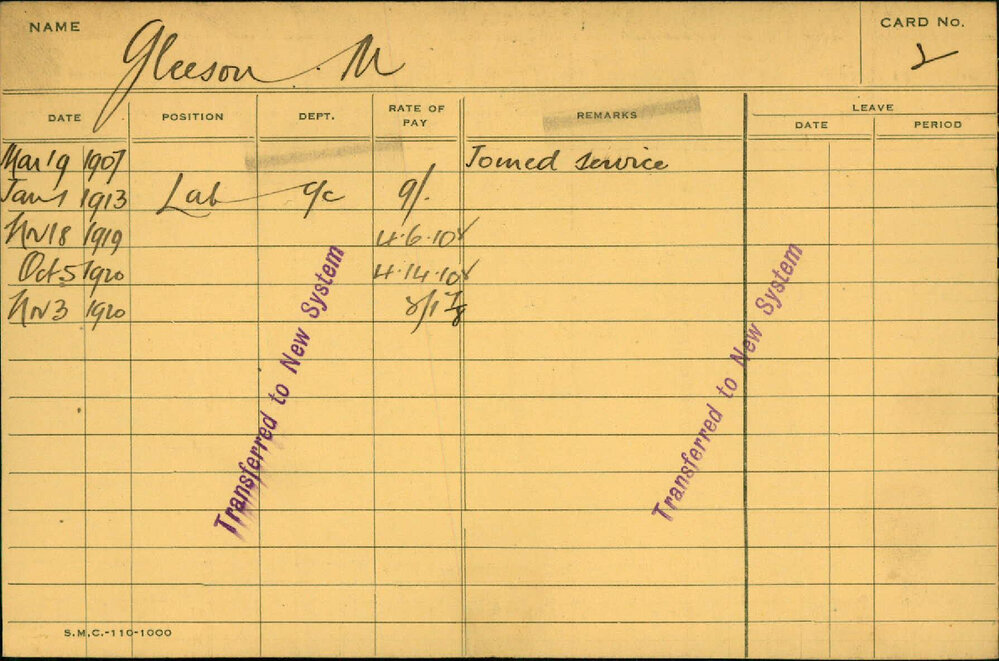 NAME Gleeson. M CARD No. 2
DATE POSITION DEPT. RATE OF PAY REMARKS LEAVE
DATE PERIOD
Mar 19 1907 Joined service
Jan 1 1913 Lab c/c 9/.
Nov 18 1919 4.6.10
Oct 5 1920 4.14.10
Nov 3 1920
Transferred to New System
Transferred to New System
S.M.C.-110-1000